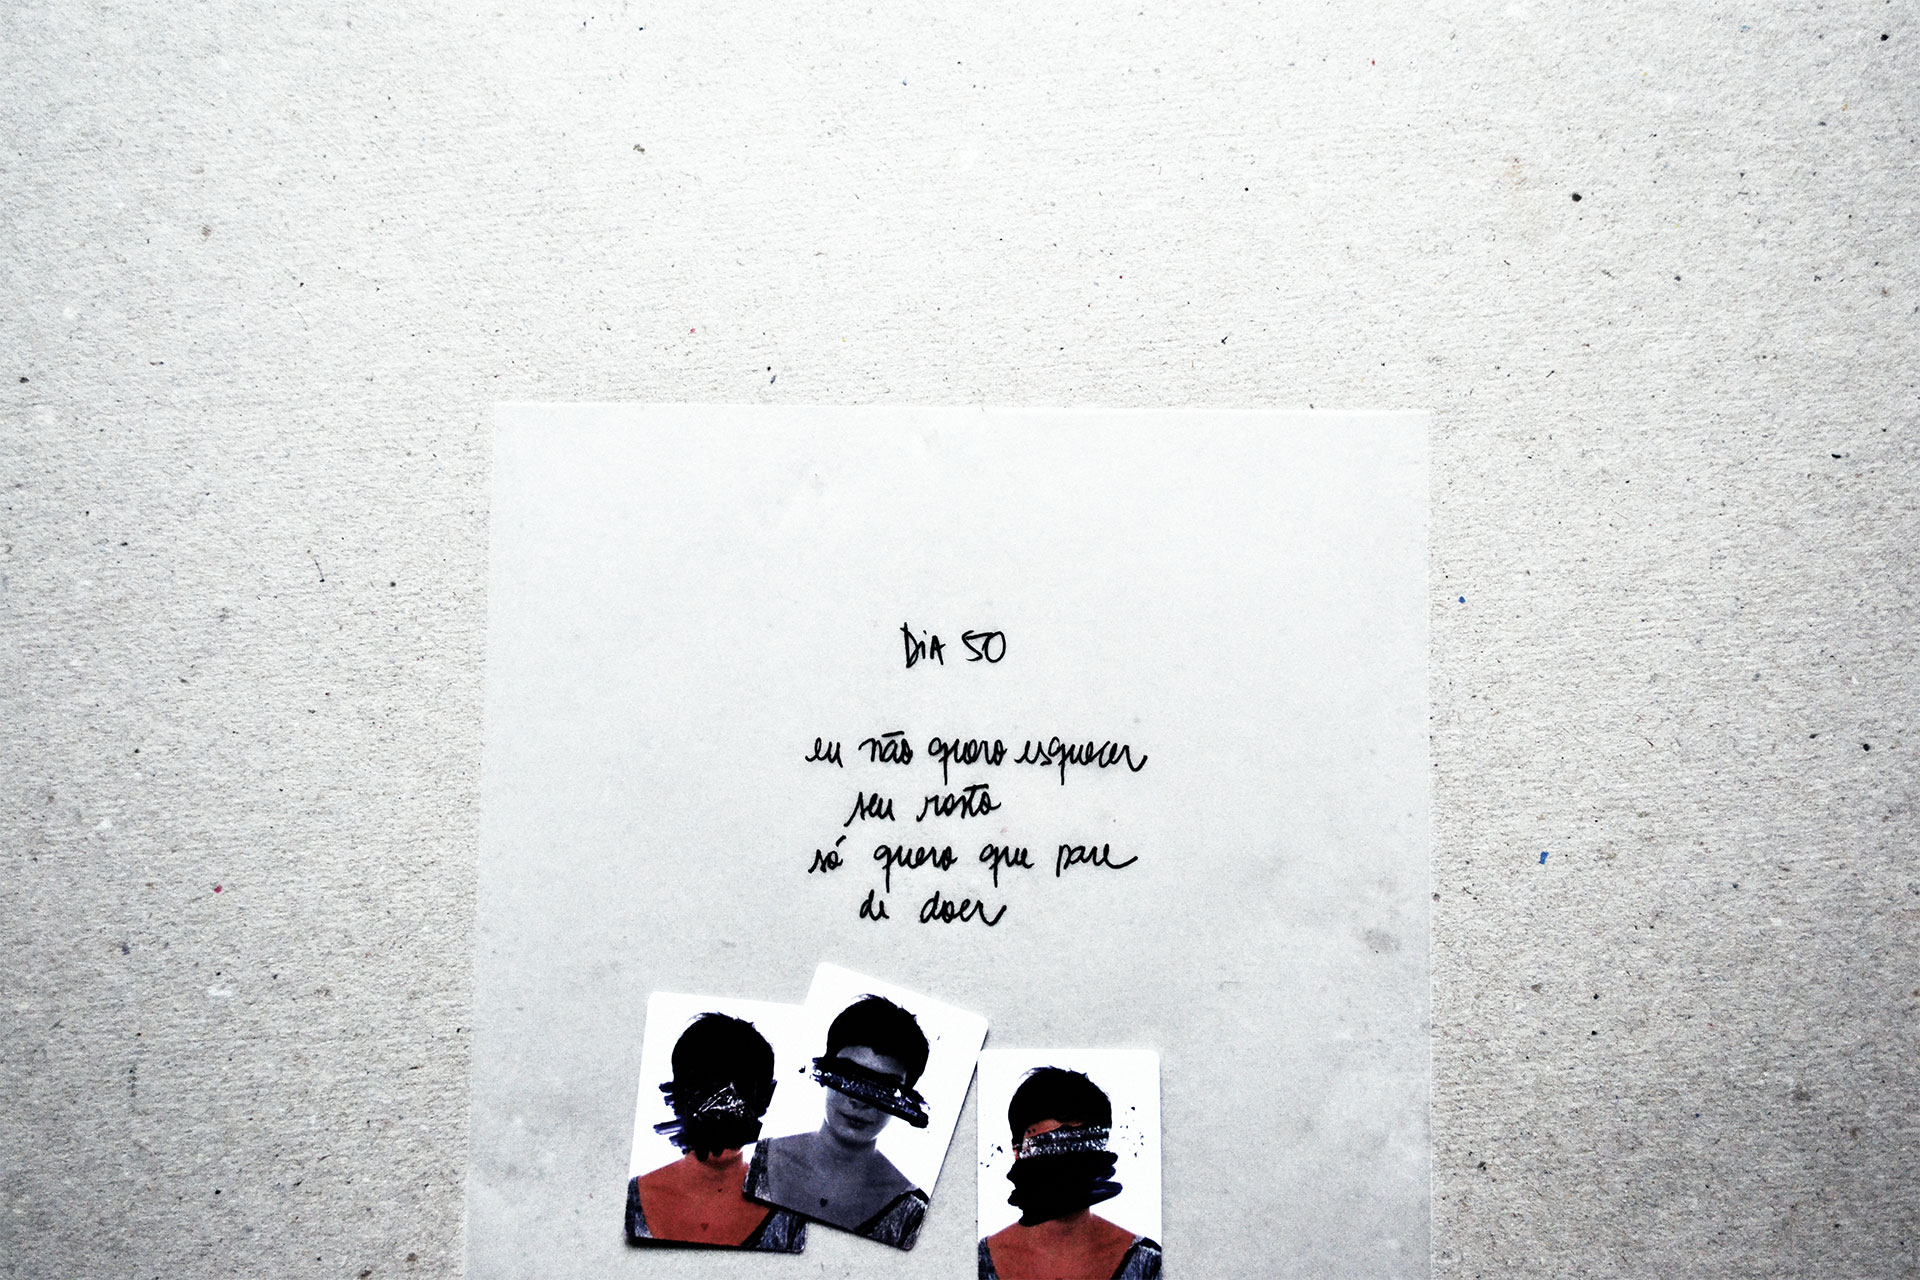 DiA 50
eu não quero esquecer
seu rosto
só quero que pare
de doer